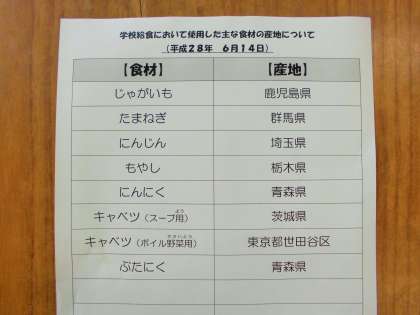 学校給食において使用した主な食材の産地について
(平成28年 6月14日)
【食材】 【産地】
じゃがいも 鹿児島県
たまねぎ 群馬県
にんじん 埼玉県
もやし 栃木県
にんにく 青森県
キャベツ(スープ用) 茨城県
キャベツ(ボイル野菜用) 東京都世田谷区
ぶたにく 青森県